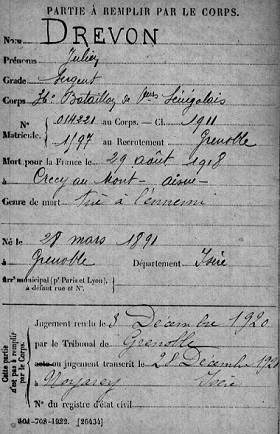 PARTIE À REMPLIR PAR LE CORPS.
Nom DREVON
Prénoms Julien
Grade Sergent
Corps Bataillon de Sénégalais
N° 014221 au Corps. — Cl. 1911
Matricule. 1/97 au Recrutement Grenoble
Mort pour la France le 29 août 1918
à Crécy au Mont - aisne -
Genre de mort Tué à l'ennemi
Né le 28 mars 1891
à Grenoble Département Isère
Arrt municipal (pr Paris et Lyon),
à défaut rue et N°.
Cette partie
n'est pas à remplir
par le Corps.
Jugement rendu le 3 Décembre 1920
par le Tribunal de Grenoble
acte ou jugement transcrit le 28 Décembre
à Isère
N° du registre d'état civil
-708-1922. [26434]